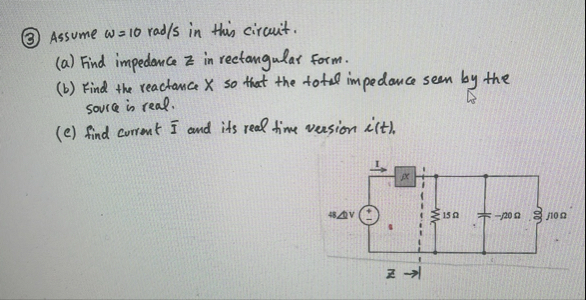 ③ Assume ω = 10 rad/s in this circuit.
(a) Find impedance Z in rectangular form.
(b) Find the reactance X so that the total impedance seen by the
source is real.
(c) find current Ī and its real time version i(t).
I
jX
V
15 Ω
-j20 Ω
j10 Ω
Z →